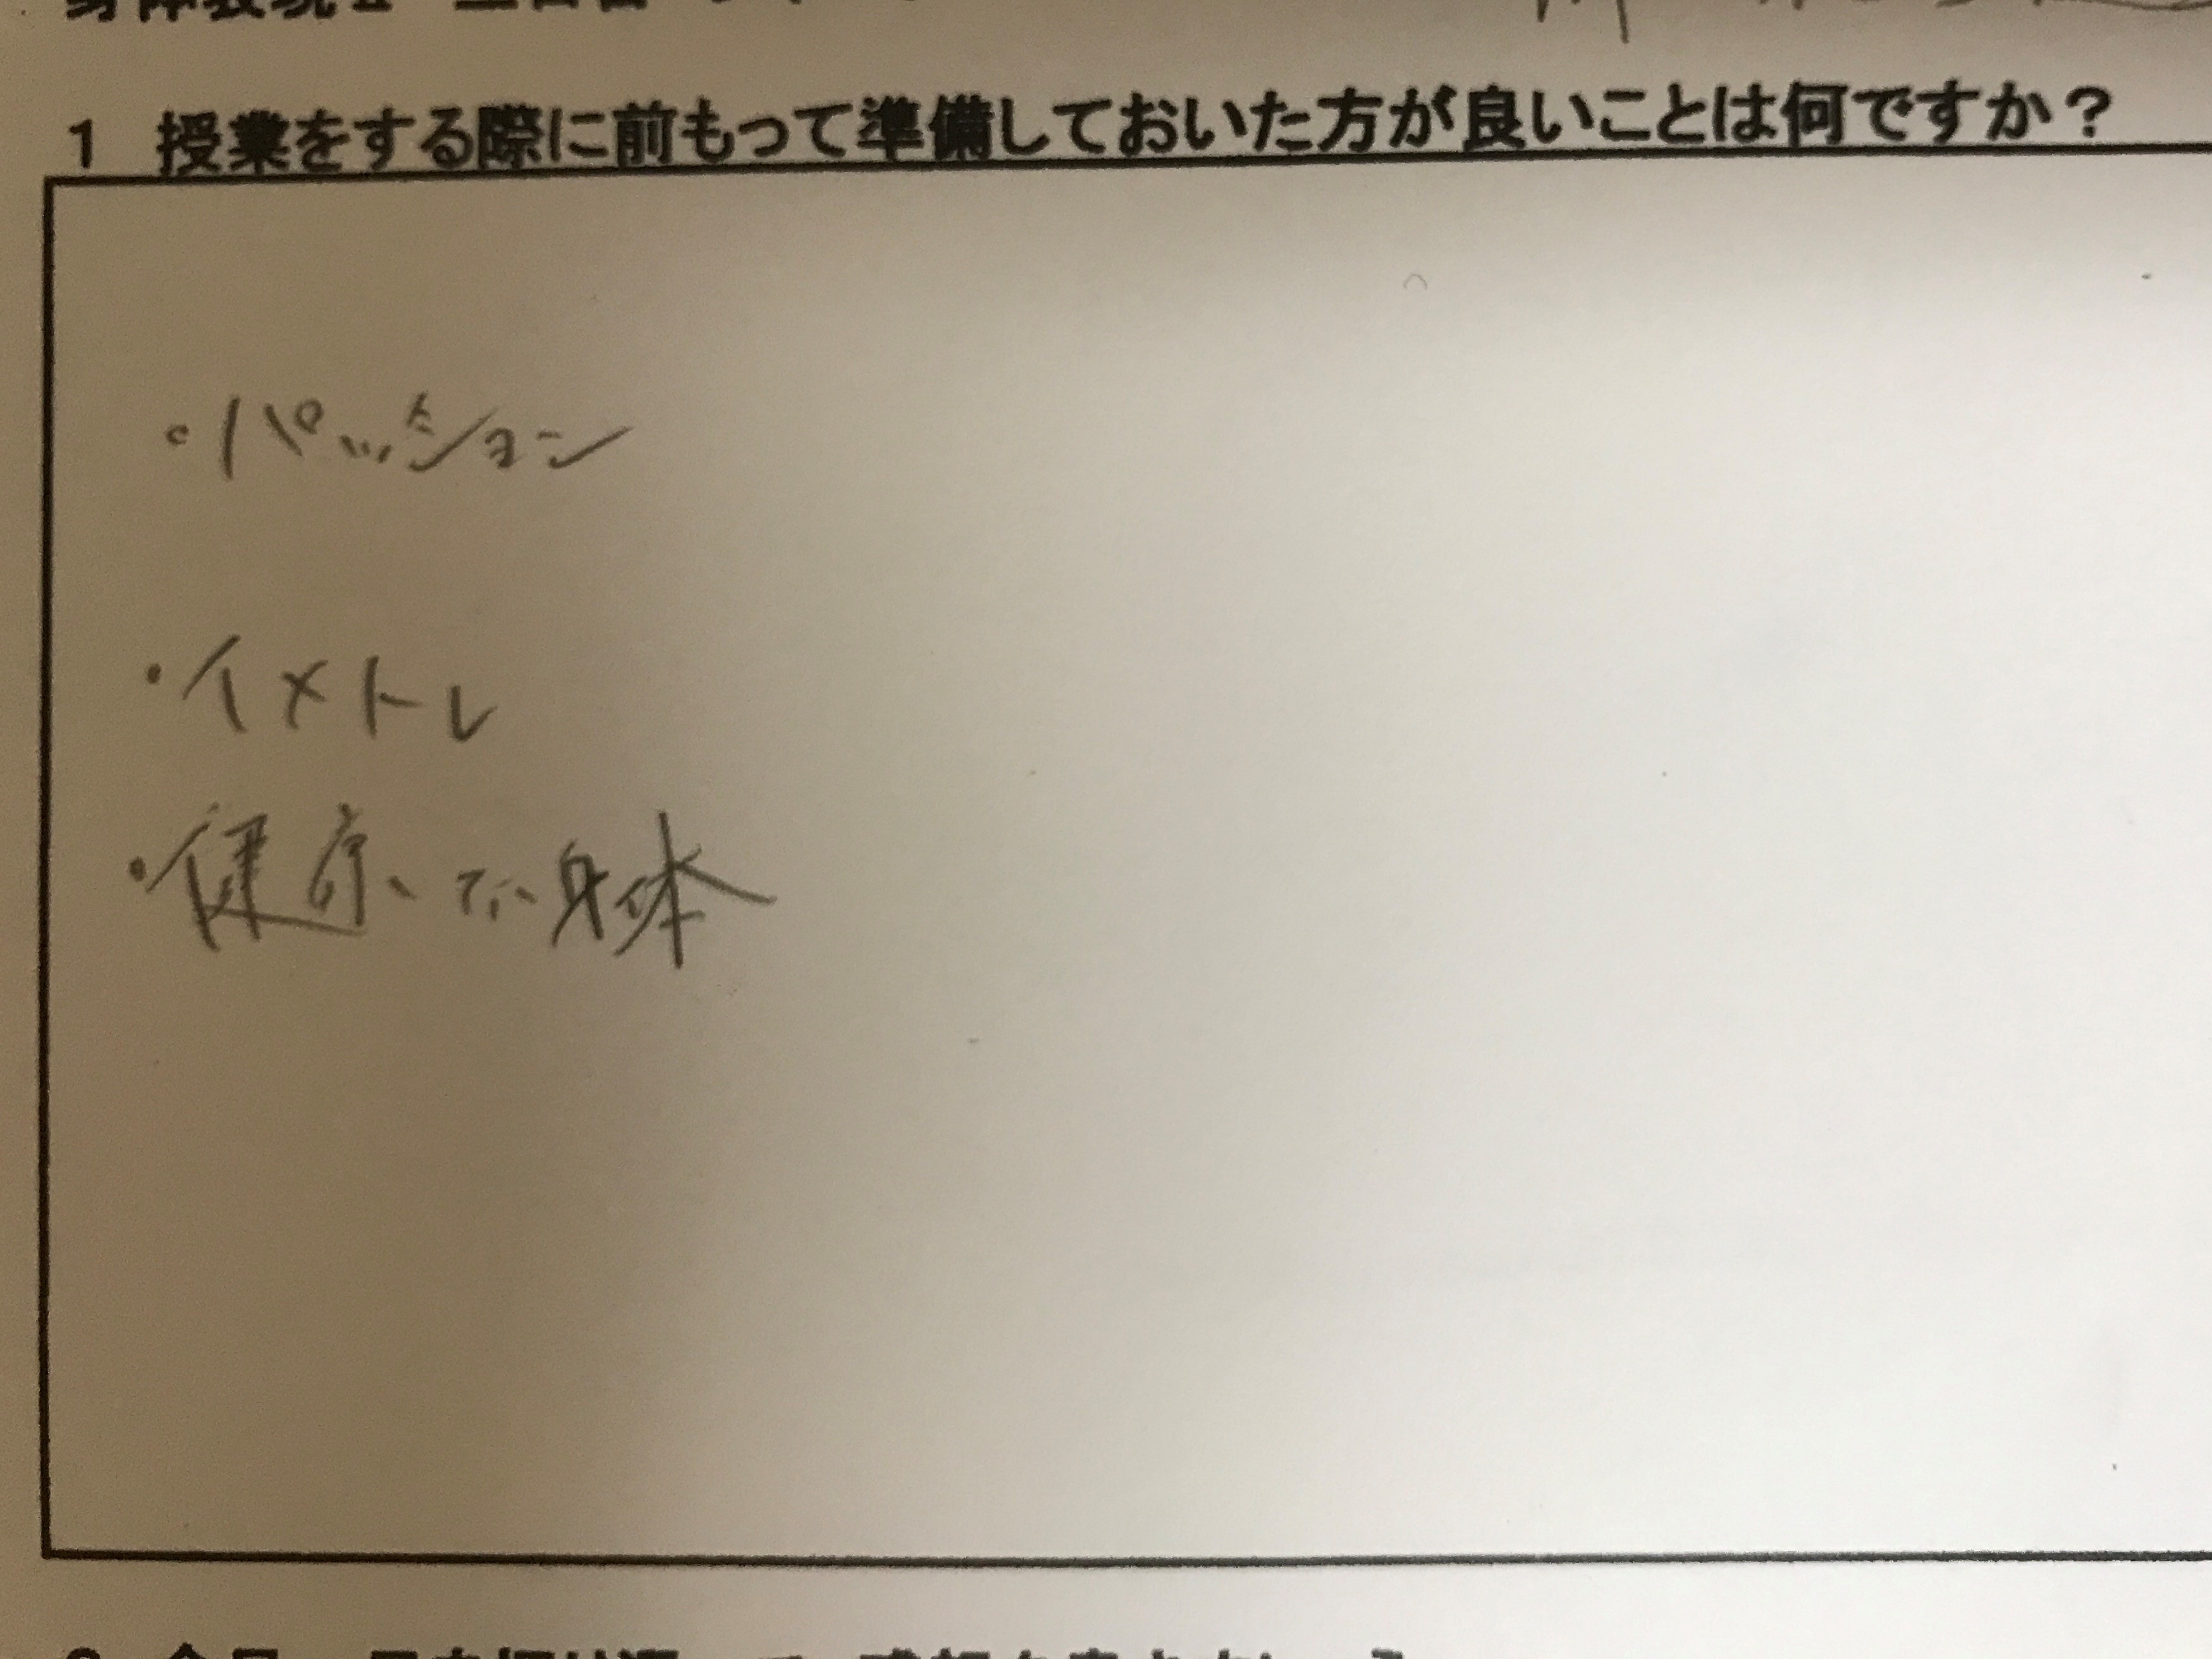 1 授業をする際に前もって準備しておいた方が良いことは何ですか？
・パッション
・イメトレ
・健康な身体